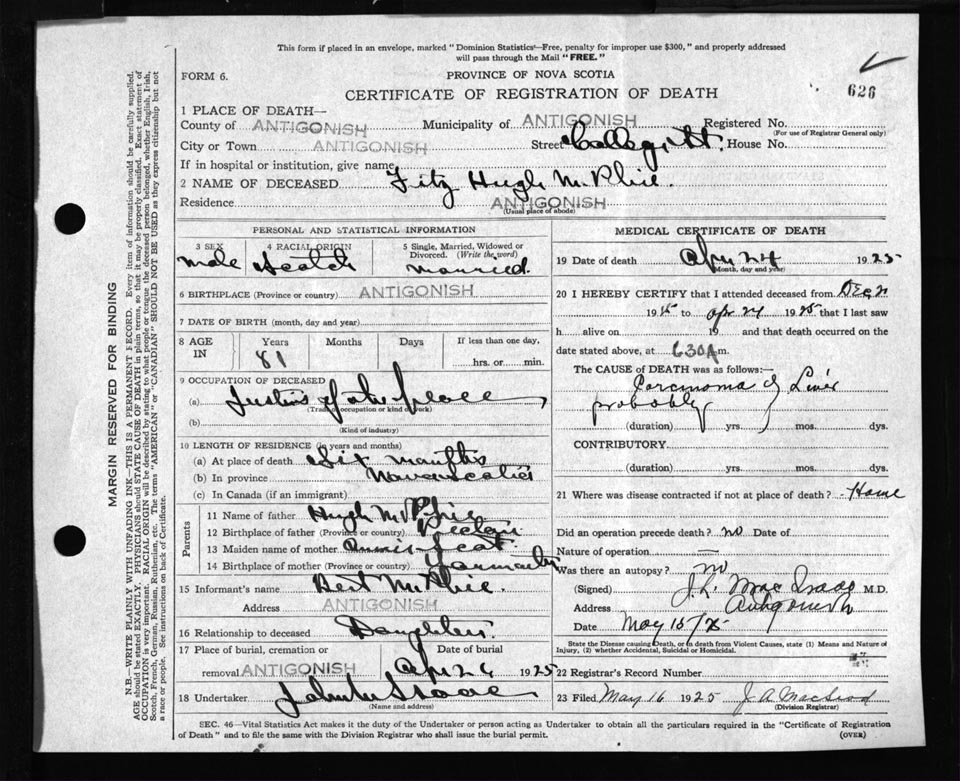 This form if placed in an envelope, marked "Dominion Statistics—Free, penalty for improper use $300," and properly addressed
will pass through the Mail "FREE."
FORM 6. PROVINCE OF NOVA SCOTIA
CERTIFICATE OF REGISTRATION OF DEATH 626
1 PLACE OF DEATH—
County of ANTIGONISH Municipality of ANTIGONISH Registered No.
(For use of Registrar General only)
City or Town ANTIGONISH Street College St. House No.
If in hospital or institution, give name
2 NAME OF DECEASED Fitz Hugh McPhie.
Residence ANTIGONISH
(Usual place of abode)
PERSONAL AND STATISTICAL INFORMATION
3 SEX 4 RACIAL ORIGIN 5 Single, Married, Widowed or Divorced. (Write the word)
male Scotch married.
6 BIRTHPLACE (Province or country) ANTIGONISH
7 DATE OF BIRTH (month, day and year)
8 AGE IN Years Months Days If less than one day,
81 hrs. or min.
9 OCCUPATION OF DECEASED
(a) Justice of the peace
(Trade, occupation or kind of work)
(b)
(Kind of industry)
10 LENGTH OF RESIDENCE (in years and months)
(a) At place of death Six months
(b) In province Nova Scotia
(c) In Canada (if an immigrant)
Parents
11 Name of father Hugh McPhie
12 Birthplace of father (Province or country)
13 Maiden name of mother
14 Birthplace of mother (Province or country)
15 Informant's name Bert McPhie.
Address ANTIGONISH
16 Relationship to deceased Daughter.
17 Place of burial, cremation or removal Date of burial
ANTIGONISH Apr 26 1925
18 Undertaker
(Name and address)
MEDICAL CERTIFICATE OF DEATH
19 Date of death Apr 24 1925
(Month, day and year)
20 I HEREBY CERTIFY that I attended deceased from Dec
19 to apr 24 1925 that I last saw
h alive on 19 and that death occurred on
date stated above, at 630A m.
The CAUSE of DEATH was as follows:—
Carcinoma of Liver
probably
(duration) yrs. mos. dys.
CONTRIBUTORY.
(duration) yrs. mos. dys.
21 Where was disease contracted if not at place of death? Home
Did an operation precede death? no Date of
Nature of operation
Was there an autopsy? no
(Signed) J.L. MacIsaac M.D.
Address Antigonish
Date May 15/25
State the disease causing Death, or in death from Violent Causes, state (1) Means and Nature of
Injury, (2) whether Accidental, Suicidal or Homicidal.
22 Registrar's Record Number
23 Filed May 16 1925 J. A. MacLeod
(Division Registrar)
SEC. 46—Vital Statistics Act makes it the duty of the Undertaker or person acting as Undertaker to obtain all the particulars required in the "Certificate of Registration
of Death" and to file the same with the Division Registrar who shall issue the burial permit. (OVER)
MARGIN RESERVED FOR BINDING
N.B.—WRITE PLAINLY WITH UNFADING INK—THIS IS A PERMANENT RECORD. Every item of information should be carefully supplied.
AGE should be stated EXACTLY. PHYSICIANS should STATE CAUSE OF DEATH in plain terms, so that it may be properly classified. Exact statement of
OCCUPATION is very important. RACIAL ORIGIN will be described by stating to what people or tongue the deceased person belonged, whether English, Irish,
Scotch, French, German, Russian, Ruthenian, etc. The terms "AMERICAN" or "CANADIAN" SHOULD NOT BE USED as they express citizenship but not
a race or people. See instructions on back of Certificate.